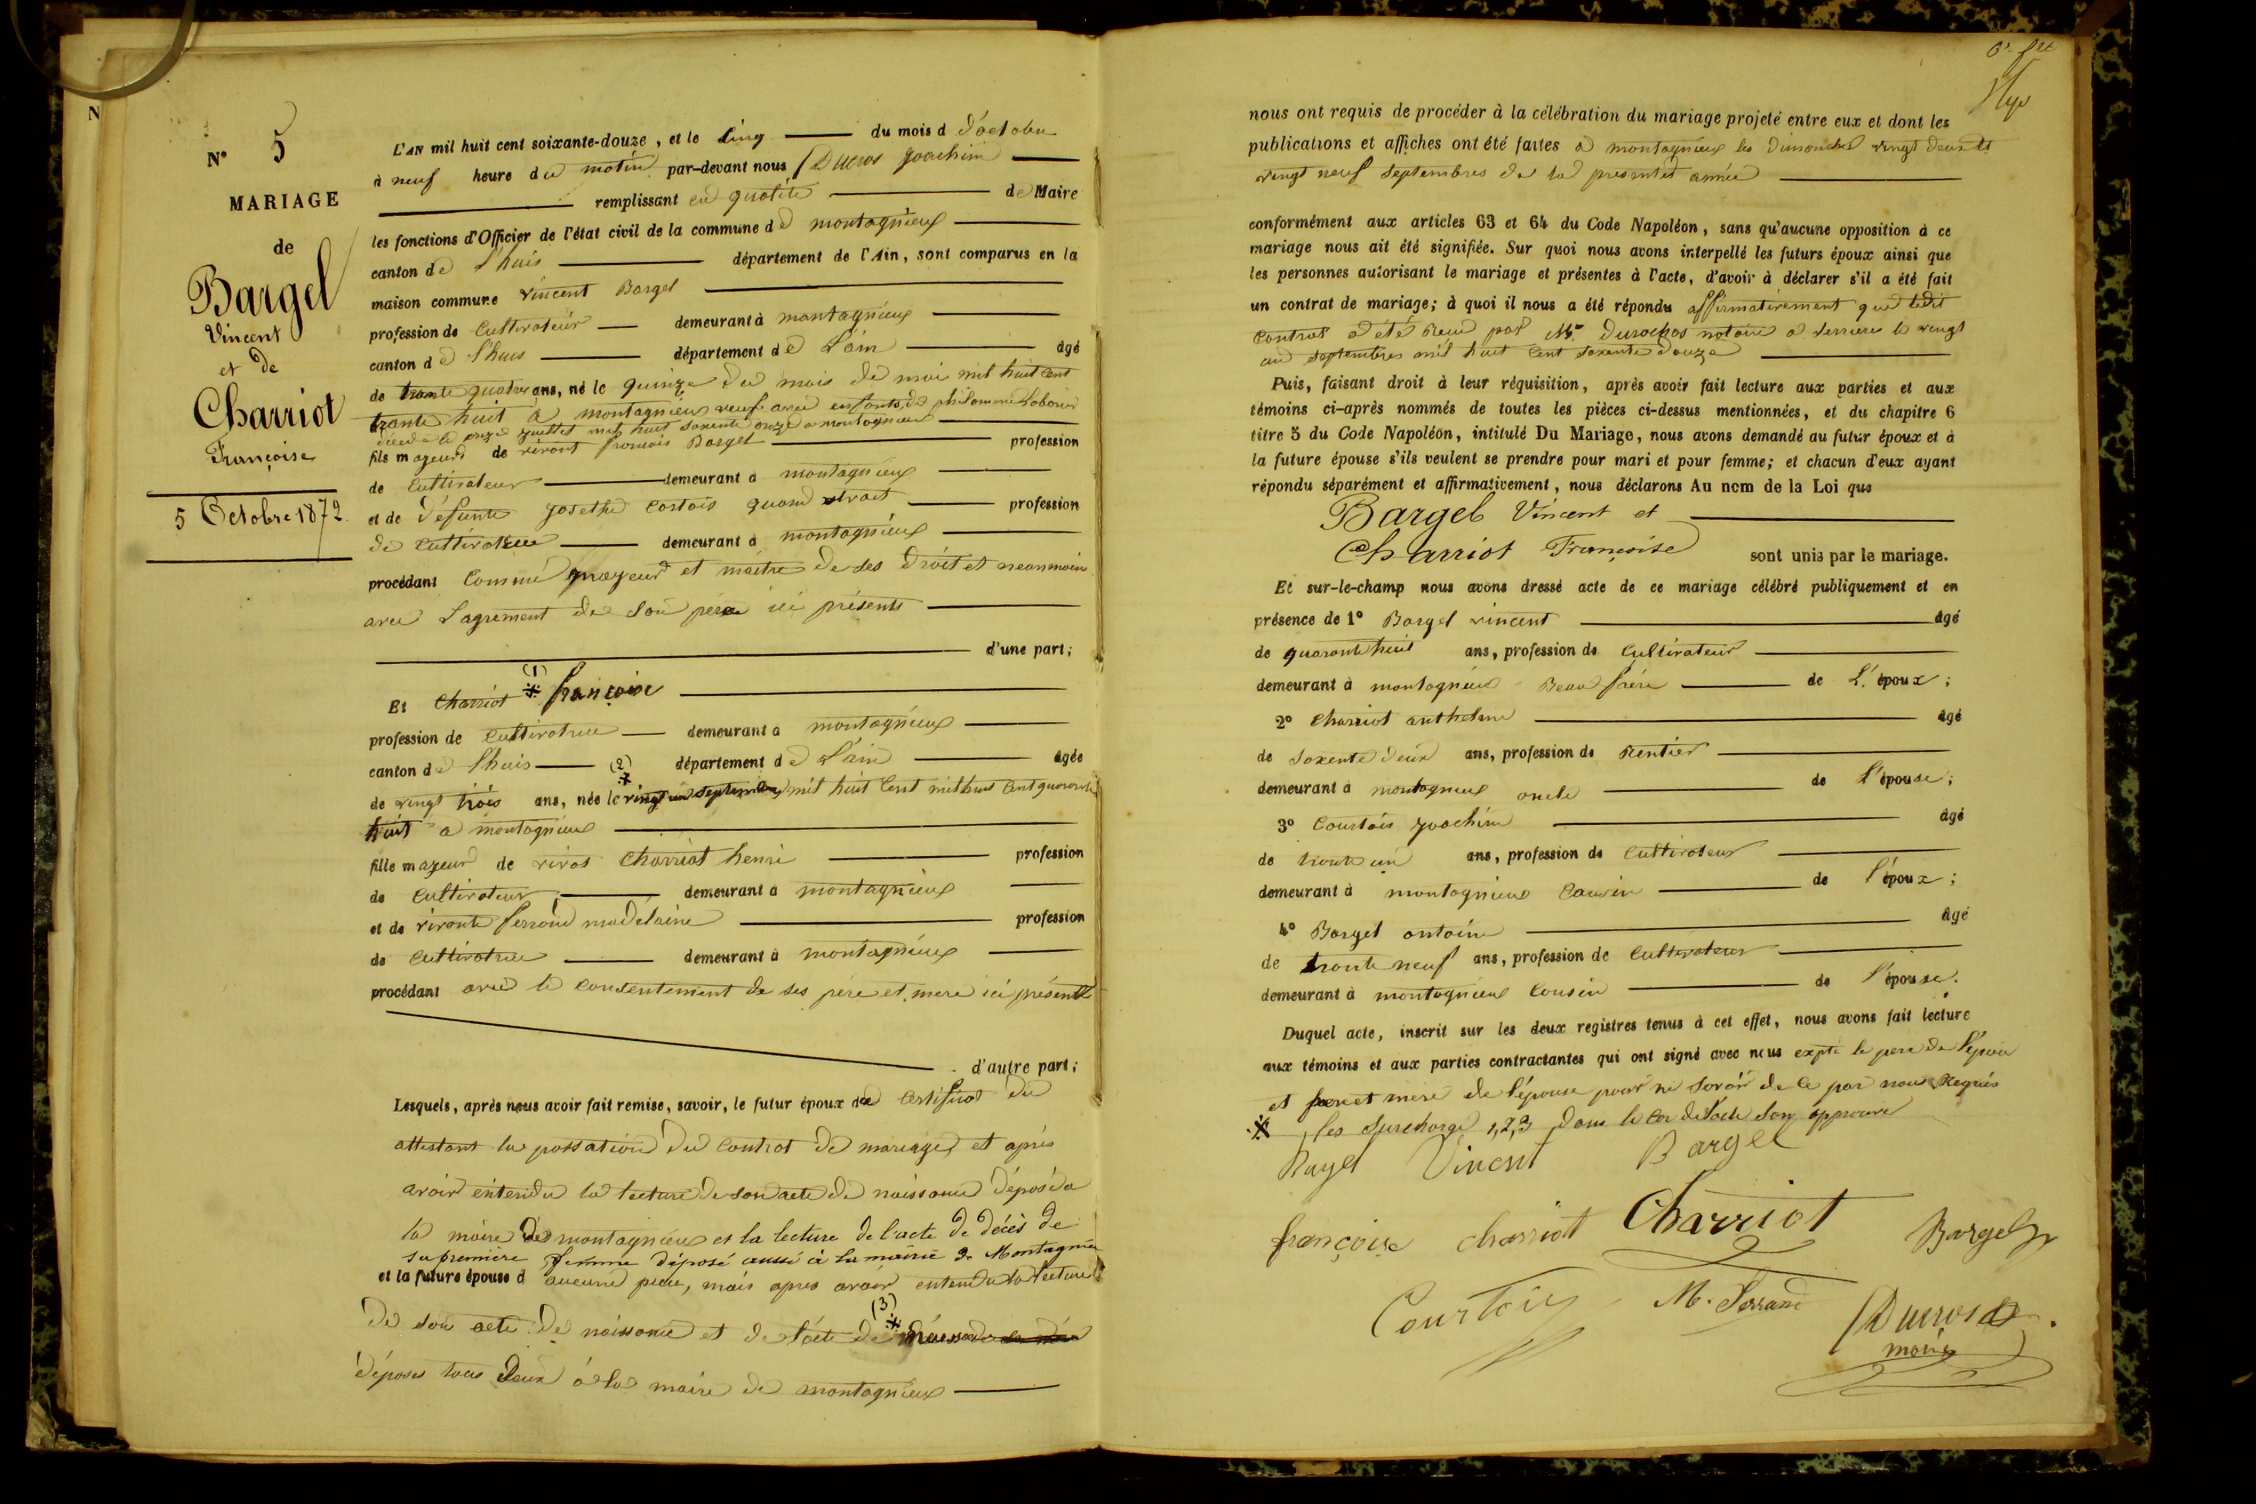 N
N° 5
MARIAGE
de
Bargel
Vincent
et de
Charriot
Françoise
5 Octobre 1872.
L'AN mil huit cent soixante-douze, et le Cinq du mois d d'octobre
à neuf heure du matin par-devant nous Ducros joachim
remplissant en qualité de Maire
les fonctions d'Officier de l'état civil de la commune de montagnieux
canton de l'huis département de l'Ain, sont comparus en la
maison commune vincent Bargel
profession de Cultivateur demeurant à montagnieux
canton de l'huis département de L'ain âgé
de trante quatre ans, né le quinze du mois de mai mil huit cent
trante huit à montagnieux veuf avec enfants de philomene
le onze mil huit soxente onze a montagnieux
fils majeur de vivant francois Bargel profession
de Cultivateur demeurant à montagnieux
et de défunte josethe Cortois quand vivait profession
de Cultivatrice demeurant à montagnieux
procédant Comme majeur et maitre de ses droit et neanmoin
avec L'agrement de son père ici présents
d'une part;
(1)
Et Charriot * françoise
profession de Cultivatrice demeurant à montagnieux
canton de l'huis (2) département de L'ain âgée
de vingt trois ans, née le * vingt un septembre mil huit Cent mil huit Cent quarante
huit a montagnieux
fille majeur de vivat Charriot henri profession
de Cultivateur demeurant à montagnieux
et de vivante ferrand madelaine profession
de Cultivatrice demeurant à montagnieux
procédant avec le Consentement de ses père et mere ici présents
d'autre part;
Lesquels, après nous avoir fait remise, savoir, le futur époux de Certificat du
attestant la passation du Contrat de mariage, et après
avoir entendu la lecture de son acte de naissance déposé a
la maire de montagnieux et la lecture de l'acte de décès de
sa première femme déposé aussi à la mairie de Montagnieu
et la future épouse d aucune piece, mais apres avoir entendu la lecture
(3)
de son acte de naissance et de l'acte de *
déposés tous deux à la maire de montagnieux
nous ont requis de procéder à la célébration du mariage projeté entre eux et dont les
publications et affiches ont été faites a montagnieux les dimanches vingt deux et
vingt neuf septembres de la présente année
conformément aux articles 63 et 64 du Code Napoléon, sans qu'aucune opposition à ce
mariage nous ait été signifiée. Sur quoi nous avons interpellé les futurs époux ainsi que
les personnes autorisant le mariage et présentes à l'acte, d'avoir à déclarer s'il a été fait
un contrat de mariage; à quoi il nous a été répondu affirmativement que ledit
Contrat a été Recu par Me Durochas notaire a serrieres le vingt
un septembres mil huit Cent soxente douze
Puis, faisant droit à leur réquisition, après avoir fait lecture aux parties et aux
témoins ci-après nommés de toutes les pièces ci-dessus mentionnées, et du chapitre 6
titre 5 du Code Napoléon, intitulé Du Mariage, nous avons demandé au futur époux et à
la future épouse s'ils veulent se prendre pour mari et pour femme; et chacun d'eux ayant
répondu séparément et affirmativement, nous déclarons Au nom de la Loi que
Bargel Vincent et
Charriot Françoise sont unis par le mariage.
Et sur-le-champ nous avons dressé acte de ce mariage célébré publiquement et en
présence de 1° Bargel vincent âgé
de quarante huit ans, profession de Cultivateur
demeurant à montagnieux Beau frère de L'époux;
2° Charriot anthelme âgé
de soxente deux ans, profession de Rentier
demeurant à montagnieux oncle de l'épouse;
3° Courtois joachim âgé
de trante un ans, profession de Cultivateur
demeurant à montagnieux Cousin de l'époux;
4° Bargel antoine âgé
de trante neuf ans, profession de Cultivateur
demeurant à montagnieux Cousin de l'épouse.
Duquel acte, inscrit sur les deux registres tenus à cet effet, nous avons fait lecture
aux témoins et aux parties contractantes qui ont signé avec nous expté le pere de l'époux
et pere et mère de l'épouse pour ne savoir de ce par nous Requis
* les surcharge 1, 2, 3 dans le Cor de l'acte son approuvé
Vincent Bargel
françoise charriot Charriot Bargel
Courtois M. Ferrand Ducros
maire